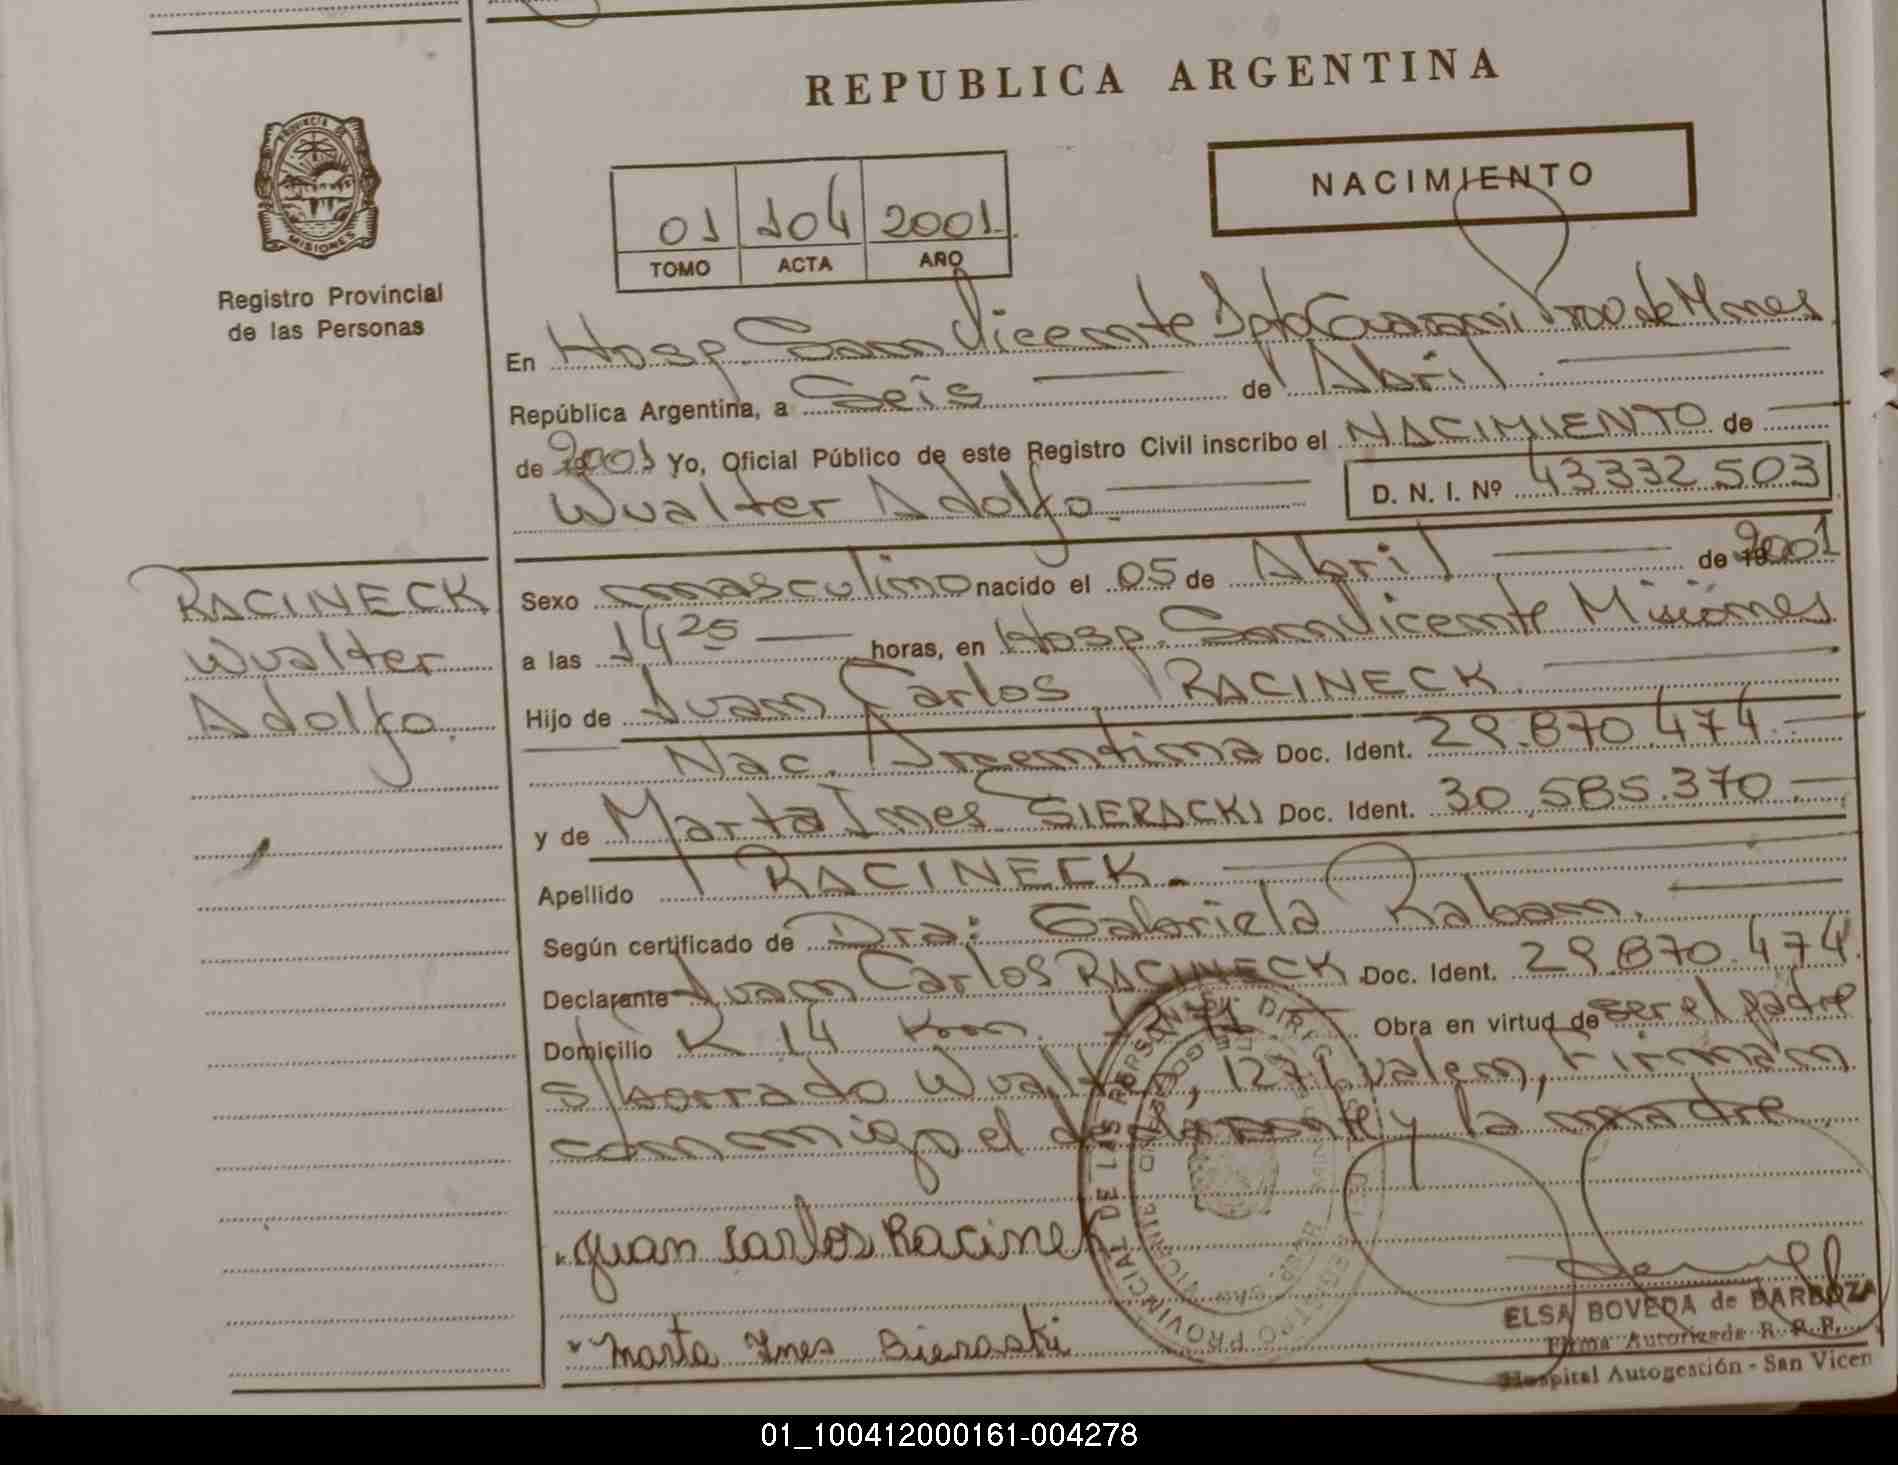 REPUBLICA ARGENTINA
PROVINCIA DE
MISIONES
Registro Provincial
de las Personas
NACIMIENTO
01 104 2001
TOMO ACTA AÑO
En Hosp. San Vicente Dpto Guarani Prov de Mnes
República Argentina, a Seis de Abril
de 2001 Yo, Oficial Público de este Registro Civil inscribo el NACIMIENTO de
Wualter Adolfo. D. N. I. Nº 43332503
RACINECK
Wualter
Adolfo.
Sexo masculino nacido el 05 de Abril de 2001
a las 14 25 horas, en Hosp. San Vicente Misiones
Hijo de Juan Carlos RACINECK
Nac. Argentina Doc. Ident. 29.870.474
y de Marta Ines SIERACKI Doc. Ident. 30.585.370
Apellido RACINECK.
Según certificado de Dra: Gabriela Raban.
Declarante Juan Carlos RACINECK Doc. Ident. 29.870.474
Domicilio K 14 Obra en virtud de ser el padre
s/borrado Wualter, 1271 valen, Firman
conmigo el declarante y la madre
Juan Carlos Racinek
Marta Ines Sieraski
ELSA BOVEDA de BARBOZA
Firma Autorizada R. P. P.
Hospital Autogestión - San Vicen
01_100412000161-004278